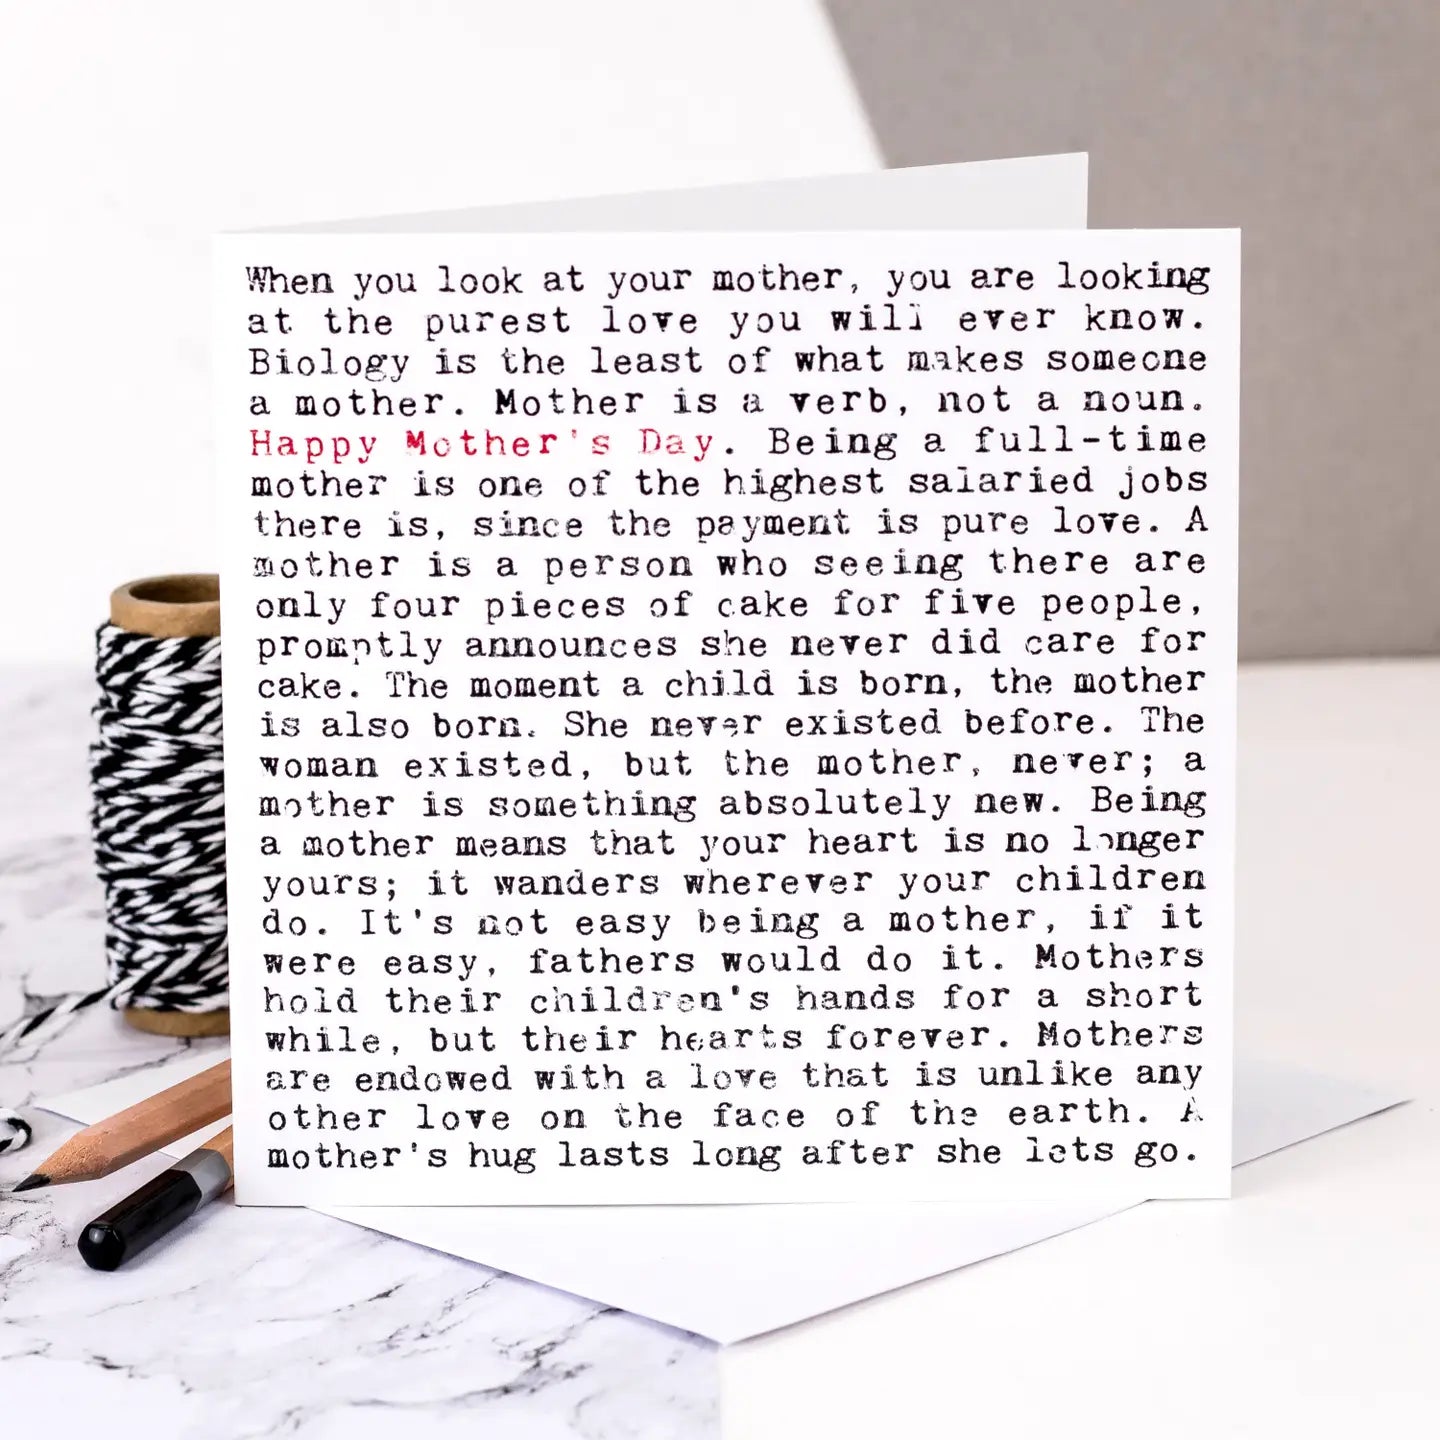 When you look at your mother, you are looking
at the purest love you will ever know.
Biology is the least of what makes someone
a mother. Mother is a verb, not a noun.
Happy Mother's Day. Being a full-time
mother is one of the highest salaried jobs
there is, since the payment is pure love. A
mother is a person who seeing there are
only four pieces of cake for five people,
promptly announces she never did care for
cake. The moment a child is born, the mother
is also born. She never existed before. The
woman existed, but the mother, never; a
mother is something absolutely new. Being
a mother means that your heart is no longer
yours; it wanders wherever your children
do. It's not easy being a mother, if it
were easy, fathers would do it. Mothers
hold their children's hands for a short
while, but their hearts forever. Mothers
are endowed with a love that is unlike any
other love on the face of the earth. A
mother's hug lasts long after she lets go.